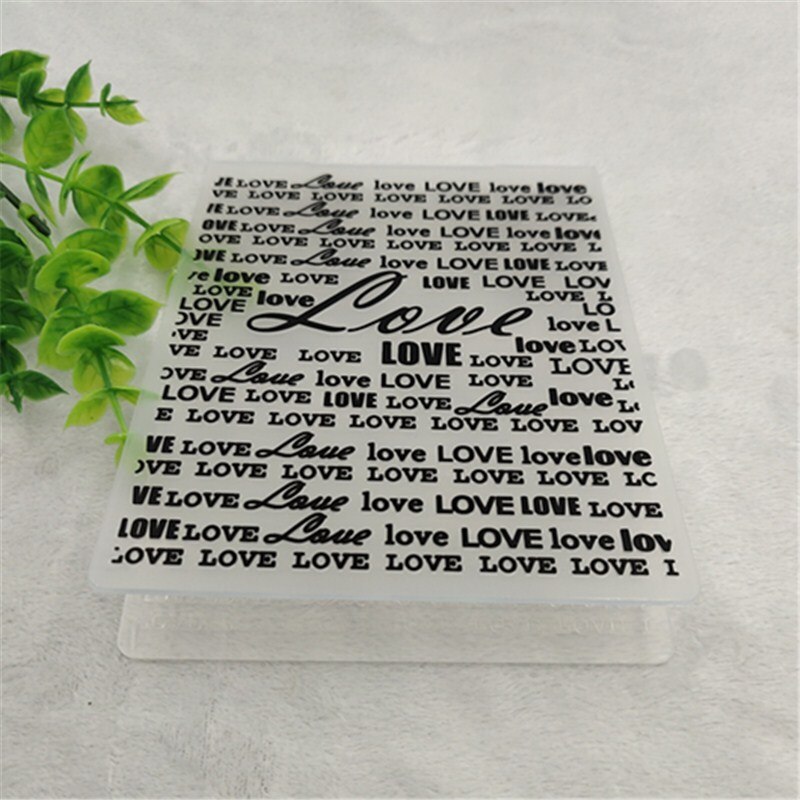 VE LOVE Love love LOVE love love
VE LOVE LOVE LOVE LOVE LOVE LOVE LO
VE LOVE Love love LOVE LOVE LOVE
OVE LOVE Love love LOVE love love
OVE LOVE LOVE LOVE LOVE LOVE LOVE L
OVE LOVE Love love LOVE LOVE LOVE
ve love LOVE LOVE LOVE LOV
LOVE LOVE L
LOVE love Love LO
OVE love L
VE love LOV
VE LOVE LOVE LOVE LOVE LOVE
OVE Love love LOVE LOVE L
LOVE LOVE LOVE LOVE Love love L
E LOVE LOVE LOVE LOVE LOVE LOV
VE LOVE Love love LOVE love love
OVE LOVE LOVE LOVE LOVE LOVE LO
VE LOVE Love love LOVE LOVE LOVE
LOVE LOVE Love love LOVE love lov
LOVE LOVE LOVE LOVE LOVE LOVE L